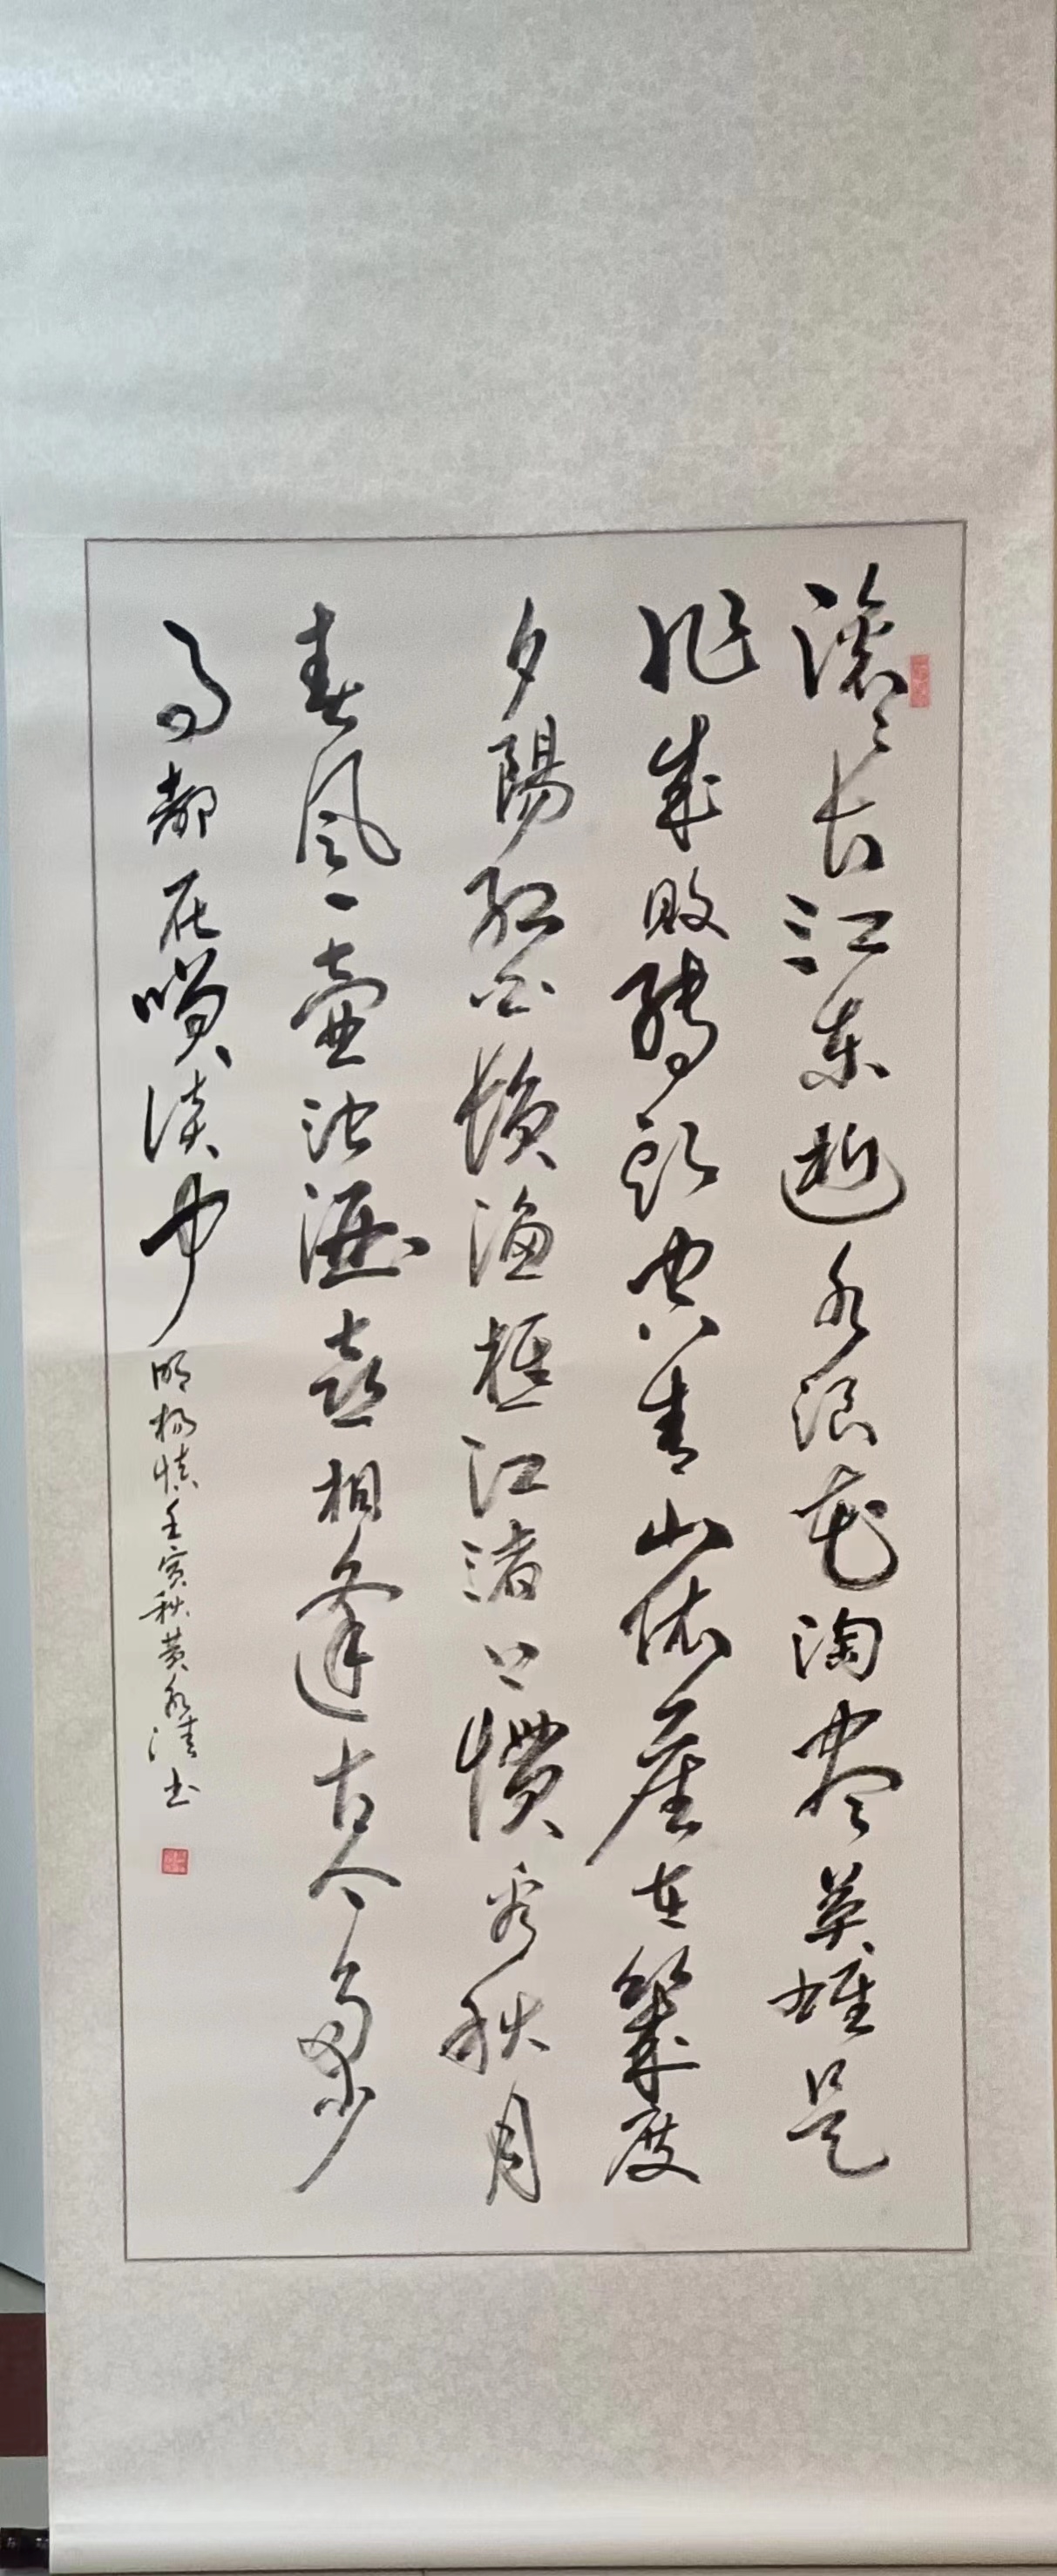 滚滚长江東逝水浪花淘尽英雄是
非成敗轉頭空青山依舊在幾度
夕陽紅白髮漁樵江渚上慣看秋月
春风一壶浊酒喜相逢古今多少
事都在笑談中 明杨慎壬寅秋黄永清书